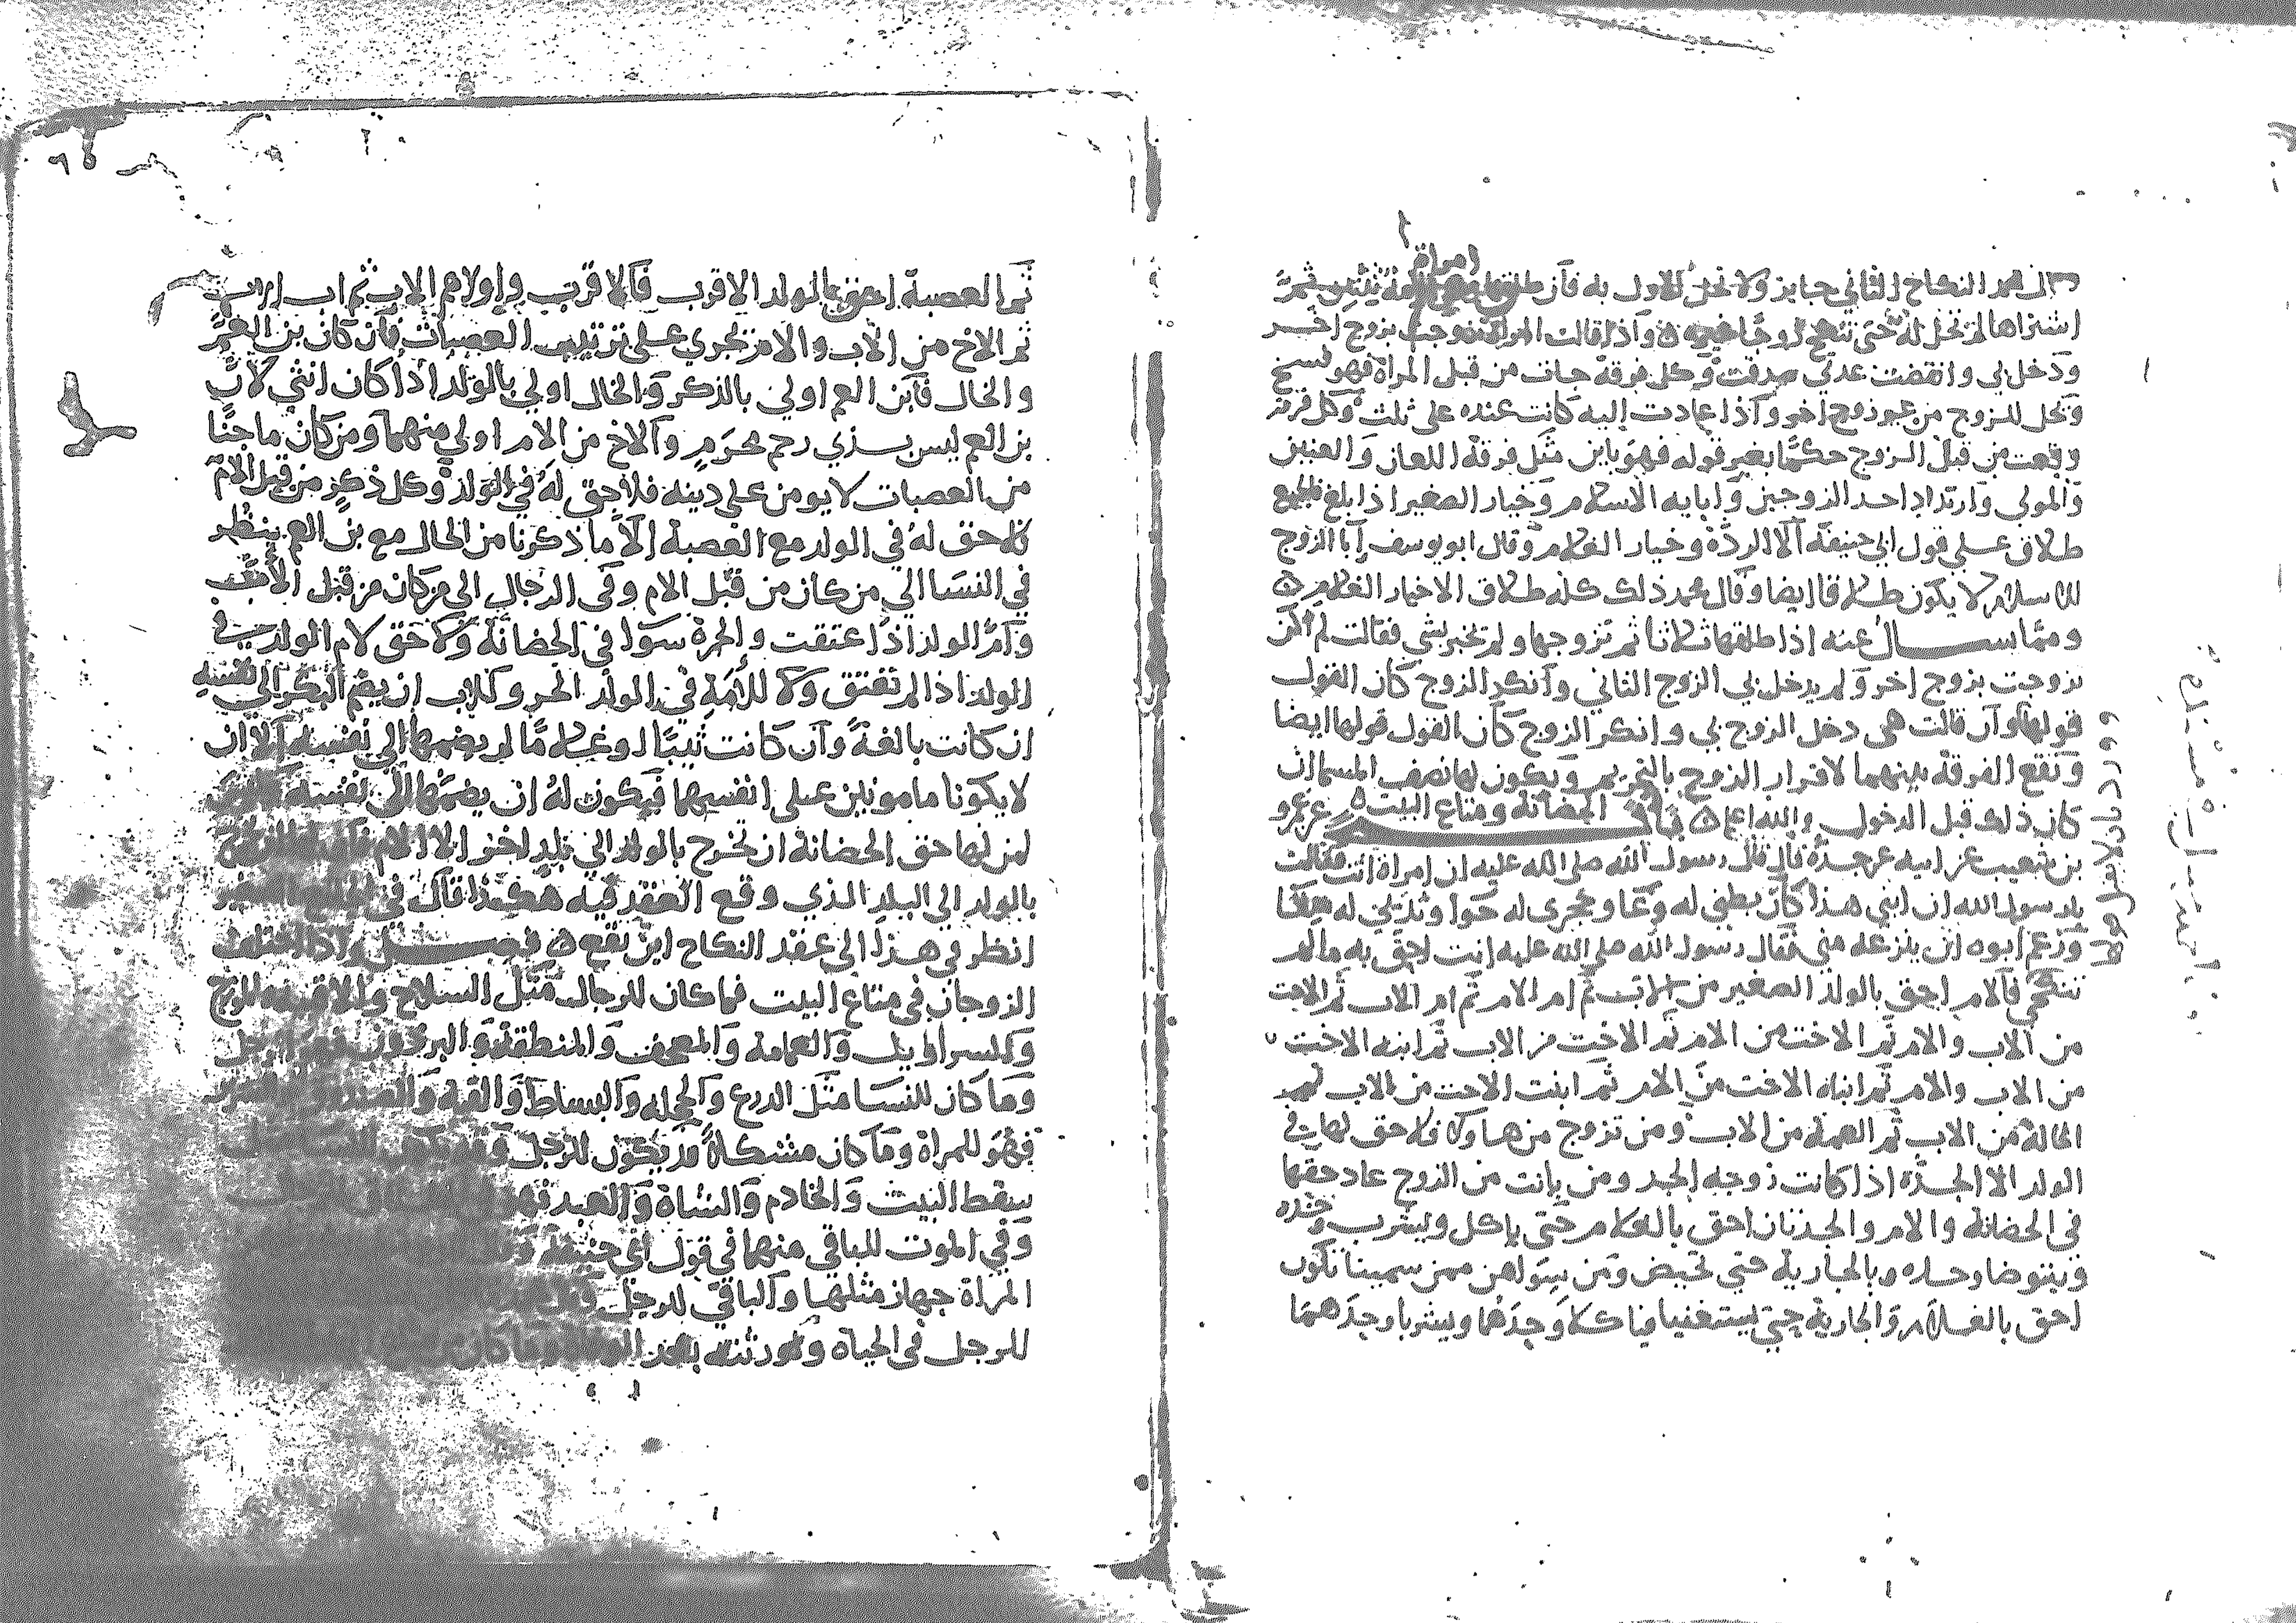 قال محمد النكاح الثاني جايز ولا تحل للاول به فان طلق امراة ثنتين ثم
اشتراها لم تحل له حتى تنكح زوجا غيره واذا قالت المراة تزوجت بزوج اخر
ودخل بي وانقضت عدتي صدقت وكل فرقة جات من قبل المراة فهو فسخ
وتحل للزوج من غير زوج اخر واذا عادت اليه كانت عنده على ثلث وكل فرقة
وقعت من قبل الزوج حكما بغير قوله فهو باين مثل فرقة اللعان والعنين
والمولي وارتداد احد الزوجين وابايه الاسلام وخيار الصغير اذا بلغ فالجميع
طلاق على قول ابي حنيفة الا الردة وخيار الغلام وقال ابو يوسف ابا الزوج
للاسلام لا يكون طلاقا ايضا وقال محمد ذلك كله طلاق الا خيار الغلام
ومما سال عنه اذا طلقها ثلاثا ثم تزوجها ولم تخبر بشي فقالت لم اكن
تزوجت بزوج اخر ولم يدخل بي الزوج الثاني وانكر الزوج كان القول
قولها وان قالت هي دخل الزوج بي وانكر الزوج كان القول قولها ايضا
وتقع الفرقة بينهما لاقرار الزوج بالتحريم ويكون لها نصف المسما ان
كان ذلك قبل الدخول والله اعلم باب الحضانة ومتاع البيت عن عمرو
بن شعيب عن ابيه عن جده قال قال رسول الله صلى الله عليه ان امراة اتت فقالت
يا رسول الله ان ابني هذا كان بطني له وعا وحجري له حوا وثديي له سقا
وزعم ابوه ان ينزعه مني فقال رسول الله صلى الله عليه انت احق به ما لم
تنكحي فالام احق بالولد الصغير من الاب ثم ام الام ثم ام الاب ثم الاخت
من الاب والام ثم الاخت من الام ثم الاخت من الاب ثم ابنة الاخت
من الاب والام ثم ابنة الاخت من الام ثم ابنت الاخت من الاب ثم
الخالة من الاب ثم العمة من الاب ومن تزوج من هاولا فلا حق لها في
الولد الا الجدة اذا كانت زوجه الجد ومن بانت من الزوج عاد حقها
في الحضانة والام والجدتان احق بالغلام حتى ياكل ويشرب وحده
ويتوضا وحده وبالجارية حتى تحيض ومن سواهن ممن سمينا تكون
احق بالغلام والجارية حتى يستغنيا فياكلا وحدهما ويشربا وحدهما
٦٥
ثم العصبة احق بالولد الاقرب فالاقرب واولاهم الاب ثم اب الاب
ثم الاخ من الاب والام تجري على ترتيب العصبات فان كان بن العم
والخال فابن العم اولي بالذكر والخال اولي بالولد اذا كان انثى لان
بن العم ليس بذي رحم محرم والاخ من الام اولي منهما ومن كان ماجنا
من العصبات لا يومن على دينه فلا حق له في الولد وكل ذكر من قبل الام
فلا حق له في الولد مع العصبة الا ما ذكرنا من الخال مع بن العم ينظر
في النسا الي من كان من قبل الام وفي الرجال الى من كان من قبل الاب
وام الولد اذا عتقت والحرة سوا في الحضانة ولا حق لام الولد في
الولد اذا لم تعتق ولا للامة في الولد الحر وللاب ان يضم البكر الي نفسه
ان كانت بالغة وان كانت ثيبا او غلاما لم يضمها الي نفسه الا ان
لا يكونا مامونين على انفسهما فيكون له ان يضمهما الى نفسه وليس
لمن لها حق الحضانة ان تخرج بالولد الي بلد اخر الا الام
بالولد الي البلد الذي وقع العقد فيه هكذا قال في الجامع الصغير
انظر في هذا الى عقد النكاح اين يقع فصل واذا اختلف
الزوجان في متاع البيت فما كان للرجال مثل السلاح والاقبية للزوج
والسراويل والعمامة والمصحف والمنطقة والبرذون
وما كان للنسا مثل الدرع والحجله والبساط والقبة
فهو للمراة وما كان مشكلا قد يكون للرجل
سقط البيت والخادم والشاة والعبد فهو
وفي الموت للباقي منهما في قول ابي حنيفة
المراة جهاز مثلها والباقي للرجل
للرجل في الحياة ولورثته بعد